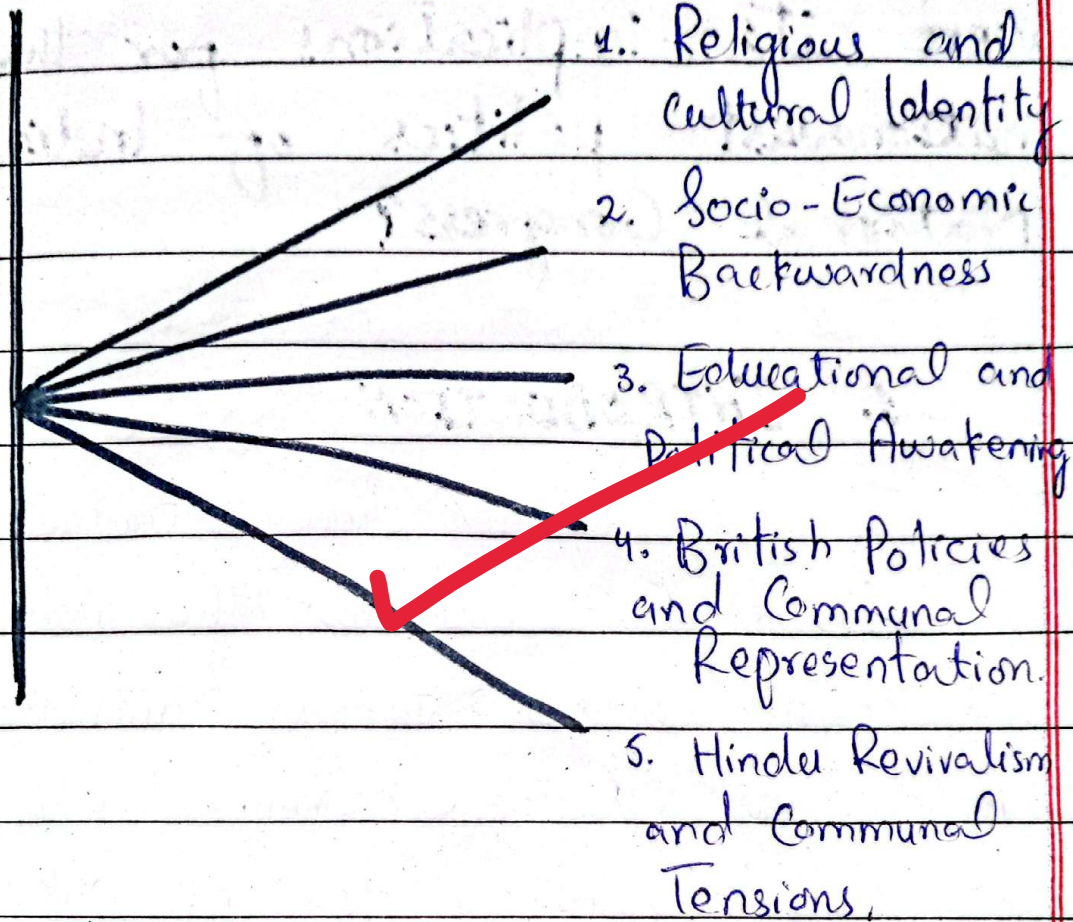 1. Religious and
Cultural Identity
2. Socio-Economic
Backwardness
3. Educational and
Political Awakening
4. British Policies
and Communal
Representation.
5. Hindu Revivalism
and Communal
Tensions,